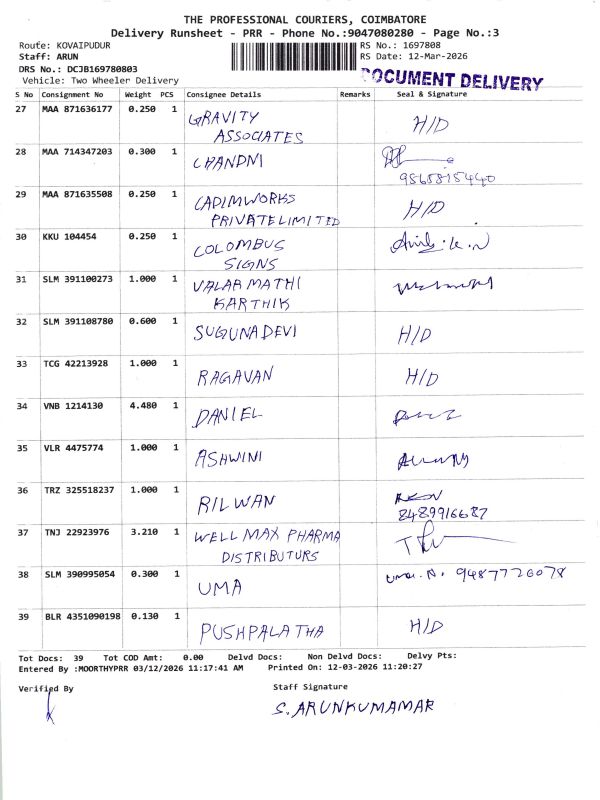 THE PROFESSIONAL COURIERS, COIMBATORE
Delivery Runsheet - PRR - Phone No.:9047080280 - Page No.:3
Route: KOVAIPUDUR
RS No.: 1697808
Staff: ARUN
RS Date: 12-Mar-2026
DRS No.: DCJB169780803
Vehicle: Two Wheeler Delivery
DOCUMENT DELIVERY
S No Consignment No Weight PCS Consignee Details Remarks Seal & Signature
27 MAA 871636177 0.250 1 GRAVITY ASSOCIATES H/D
28 MAA 714347203 0.300 1 CHANDNI
9565815440
29 MAA 871635508 0.250 1 CADIMWORKS PRIVATELIMITED H/D
30 KKU 104454 0.250 1 COLOMBUS SIGNS
31 SLM 391100273 1.000 1 VALAR MATHI KARTHIK
32 SLM 391108780 0.600 1 SUGUNADEVI H/D
33 TCG 42213928 1.000 1 RAGAVAN H/D
34 VNB 1214130 4.480 1 DANIEL
35 VLR 4475774 1.000 1 ASHWINI
36 TRZ 325518237 1.000 1 RILWAN
8489916687
37 TNJ 22923976 3.210 1 WELL MAX PHARMA DISTRIBUTURS
38 SLM 390995054 0.300 1 UMA Uma. N. 9487726078
39 BLR 4351090198 0.130 1 PUSHPALATHA H/D
Tot Docs: 39 Tot COD Amt: 0.00 Delvd Docs: Non Delvd Docs: Delvy Pts:
Entered By :MOORTHYPRR 03/12/2026 11:17:41 AM Printed On: 12-03-2026 11:20:27
Verified By
Staff Signature
S. ARUNKUMAMAR